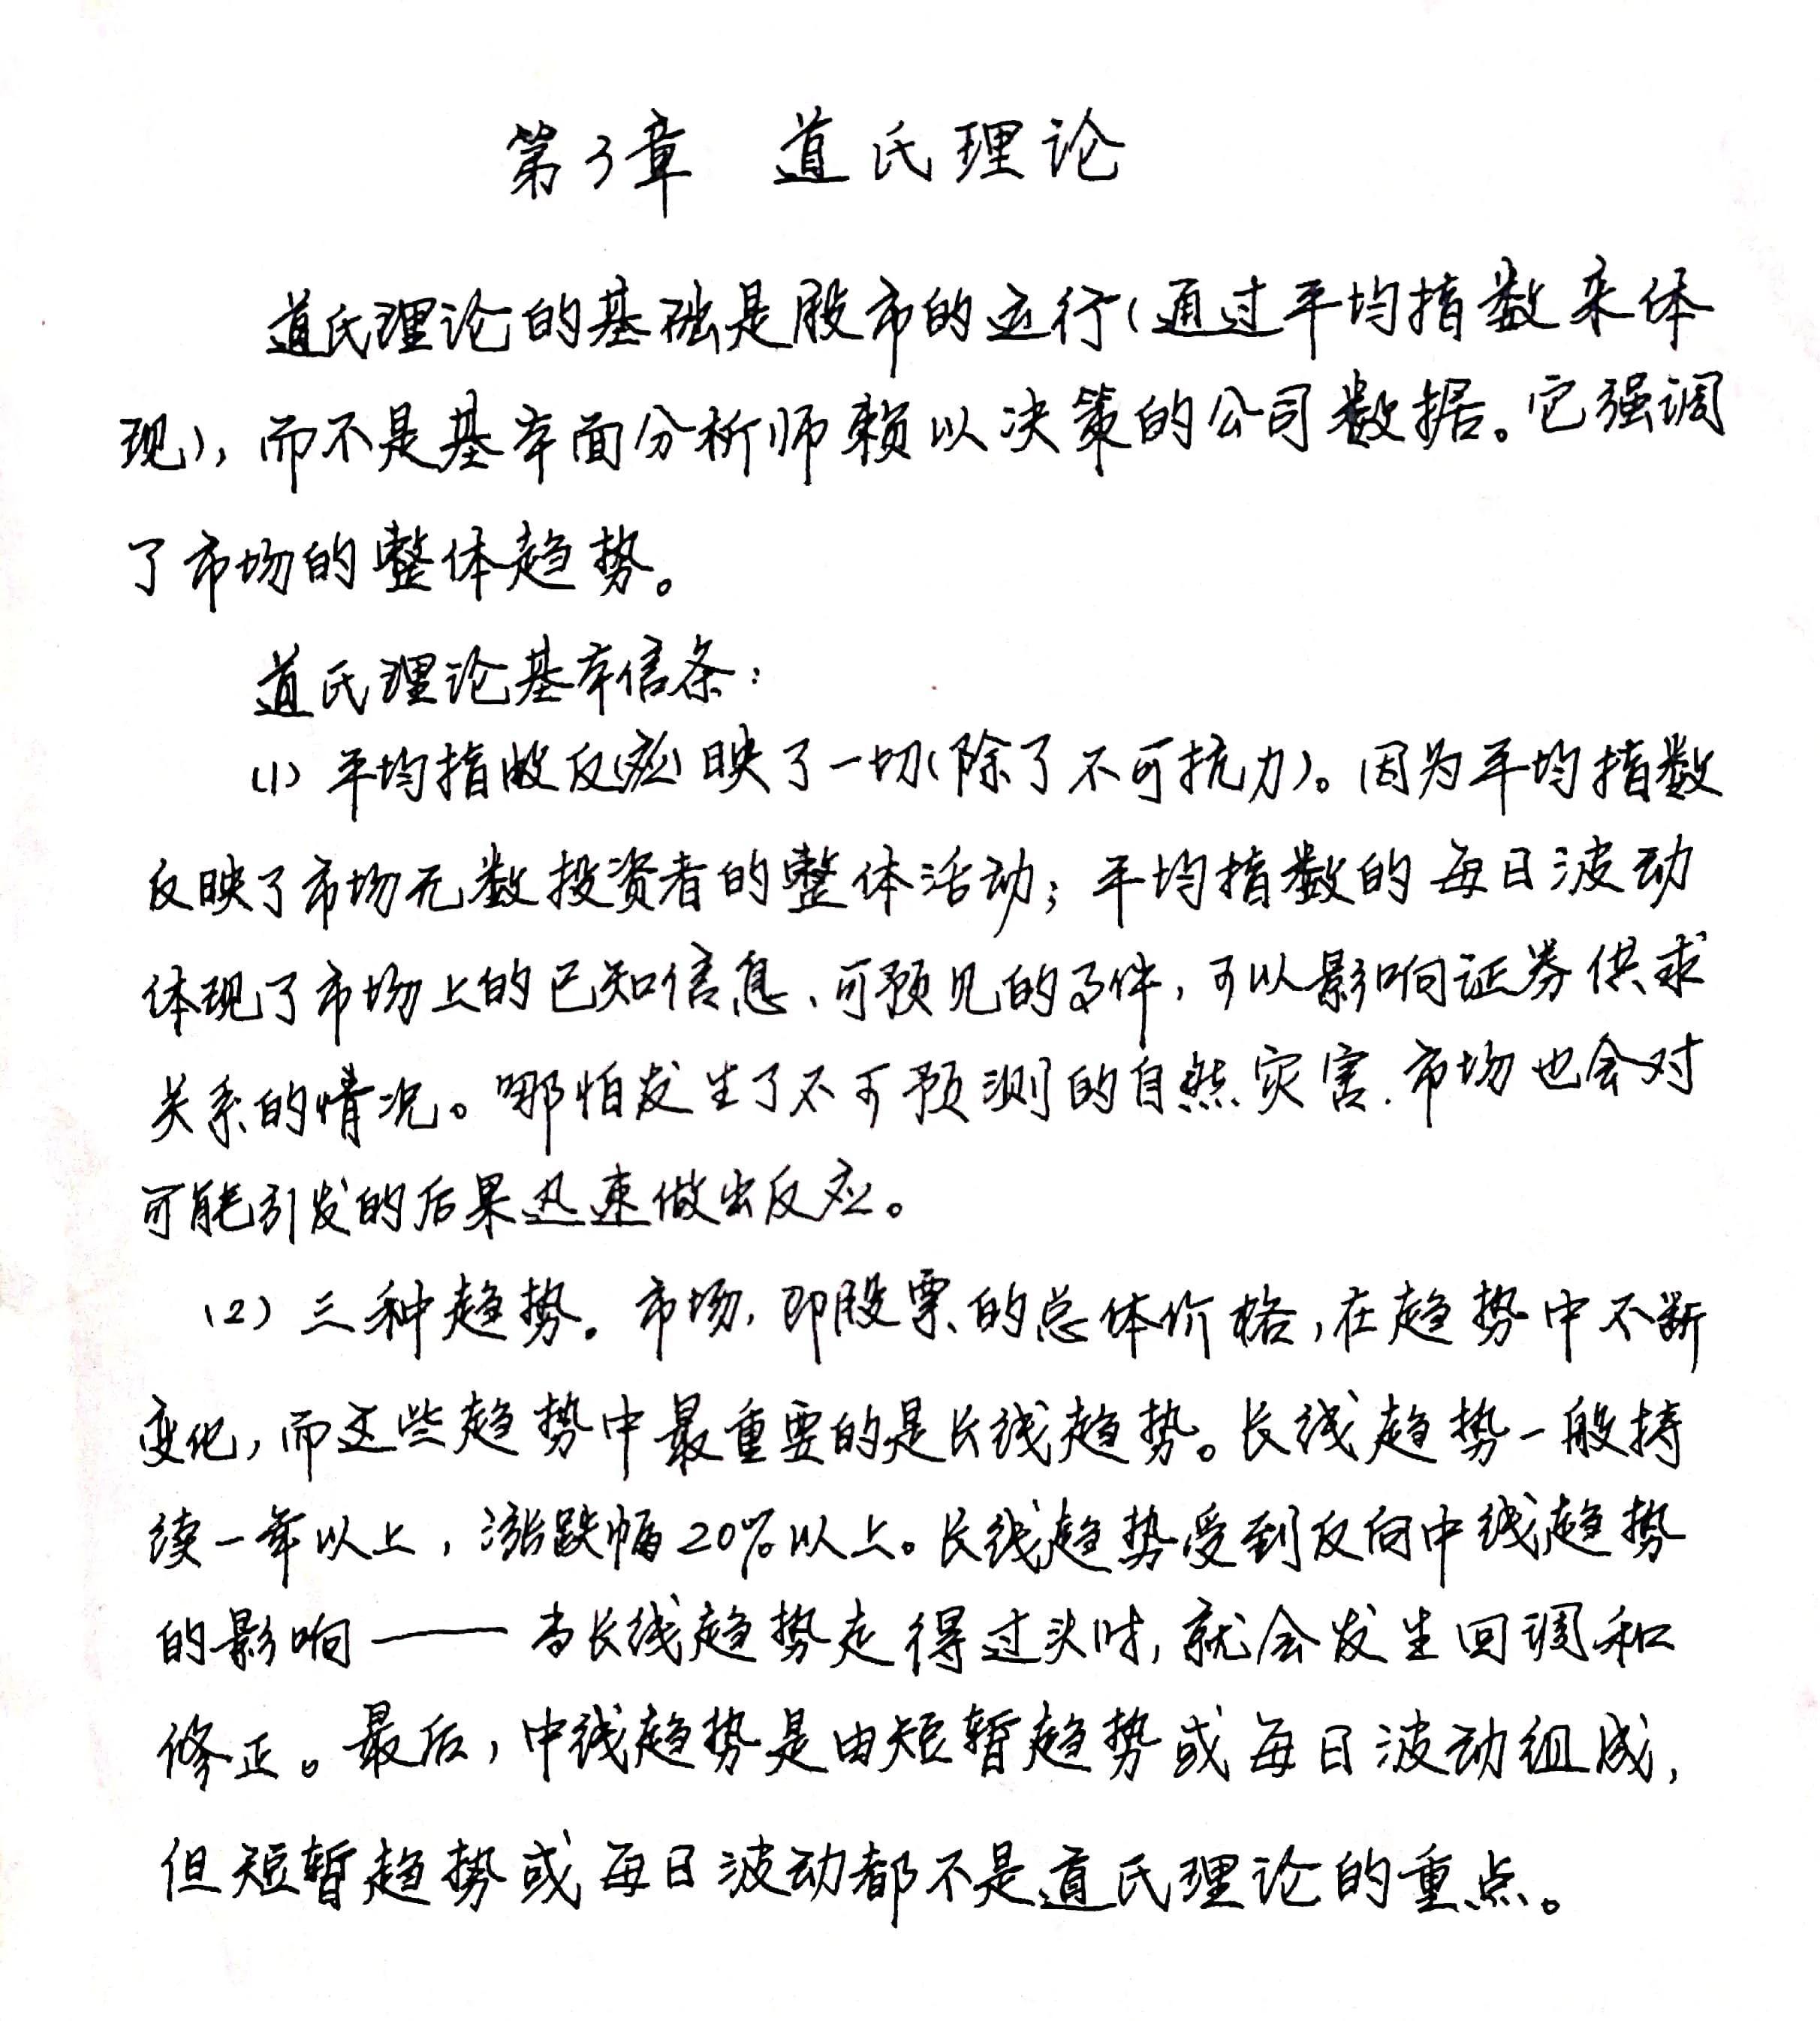 第3章 道氏理论
道氏理论的基础是股市的运行(通过平均指数来体
现),而不是基本面分析师赖以决策的公司数据。它强调
了市场的整体趋势。
道氏理论基本信条:
(1) 平均指数反(应)映了一切(除了不可抗力)。因为平均指数
反映了市场无数投资者的整体活动;平均指数的每日波动
体现了市场上的已知信息、可预见的事件,可以影响证券供求
关系的情况。哪怕发生了不可预测的自然灾害.市场也会对
可能引发的后果迅速做出反应。
(2) 三种趋势。市场,即股票的总体价格,在趋势中不断
变化,而这些趋势中最重要的是长线趋势。长线趋势一般持
续一年以上,涨跌幅20%以上。长线趋势受到反向中线趋势
的影响——当长线趋势走得过头时,就会发生回调和
修正。最后,中线趋势是由短暂趋势或每日波动组成,
但短暂趋势或每日波动都不是道氏理论的重点。